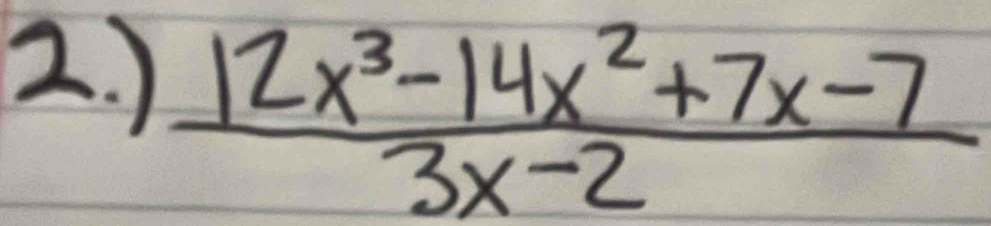 2.) 12x³-14x²+7x-7
3x-2